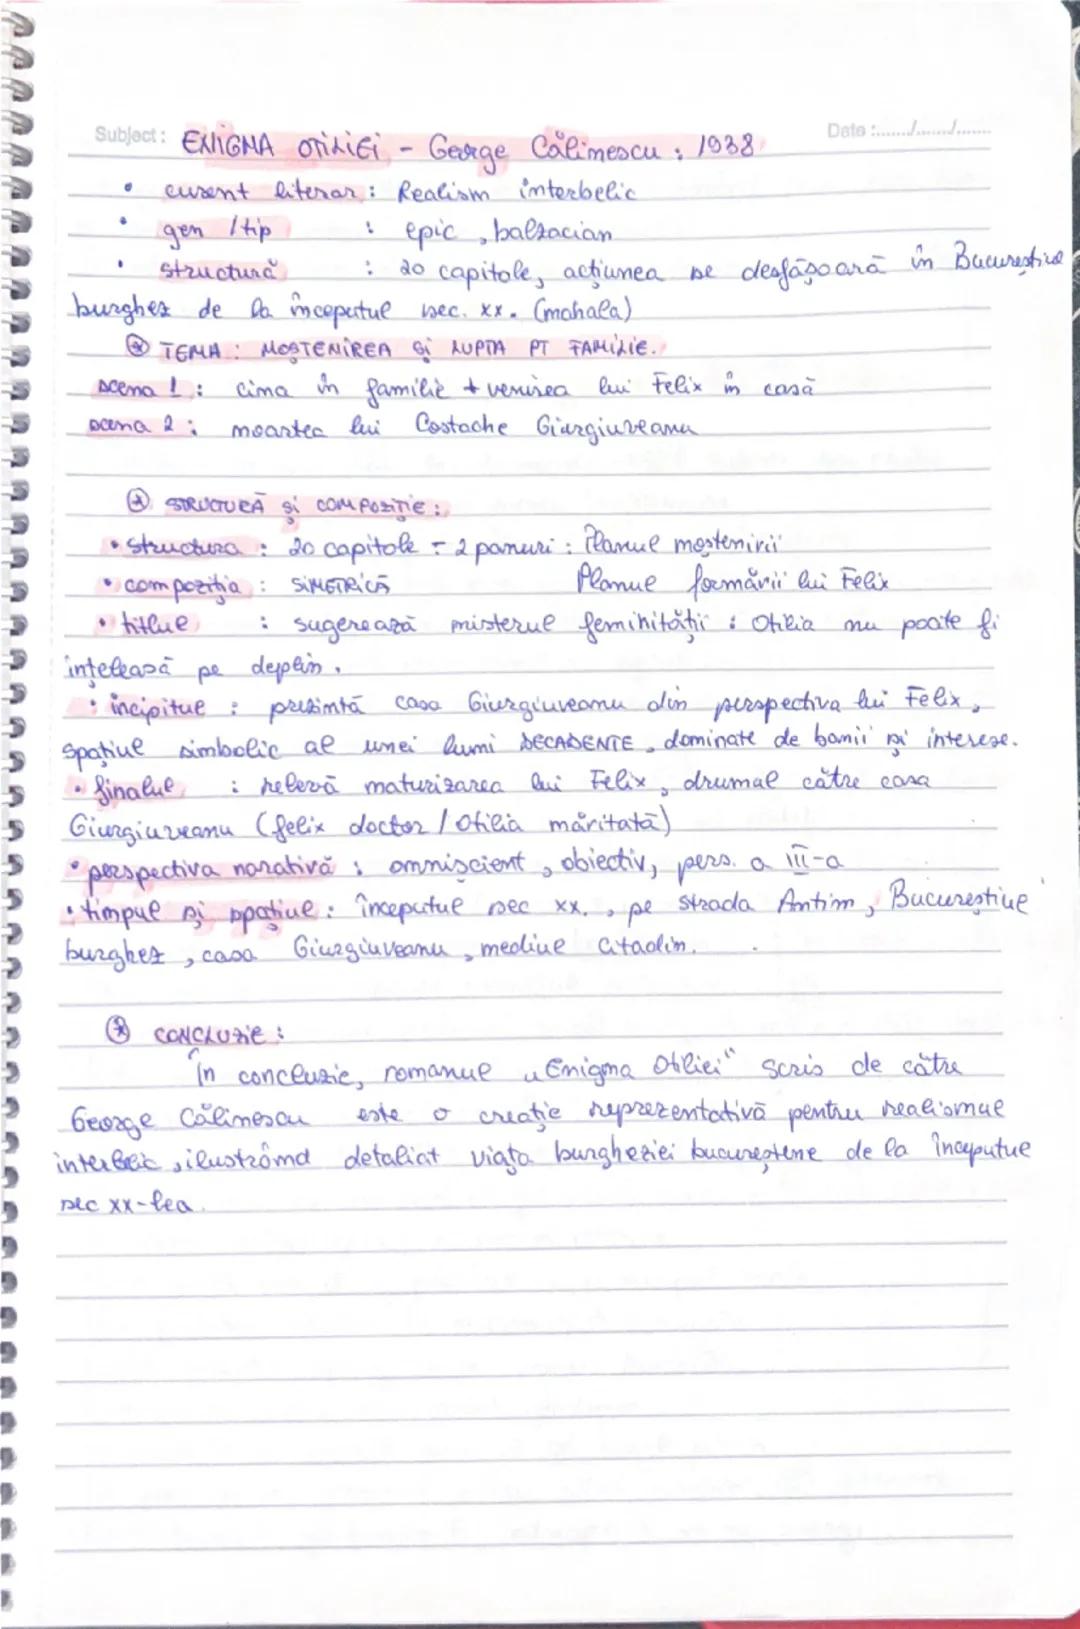 Subject: ENIGMA OTILIEI - George Călinescu ; 1938
Date :......../......../........
• curent literar : Realism interbelic
• gen / tip : epic, balzacian
• structură : 20 capitole, acțiunea se desfășoară în Bucureștiul
burghez de la începutul sec. xx. (mahala)
⊛ TEMA : MOȘTENIREA și LUPTA PT FAMILIE.
scena 1 : cina în familie + venirea lui Felix în casă
scena 2 : moartea lui Costache Giurgiuveanu
⊛ STRUCTURĂ și COMPOZIȚIE :
• structura : 20 capitole - 2 panuri : Planul moștenirii
• compoziția : SIMETRICĂ Planul formării lui Felix
• titlul : sugerează misterul feminității : Otilia nu poate fi
înțeleasă pe deplin.
• incipitul : prezintă casa Giurgiuveanu din perspectiva lui Felix,
spațiul simbolic al unei lumi DECADENTE, dominate de banii și interese.
• finalul : relevă maturizarea lui Felix, drumul către casa
Giurgiuveanu (felix doctor / Otilia măritată)
• perspectiva narativă : omniscient, obiectiv, pers. a III-a
• timpul și spațiul : începutul sec xx., pe strada Antim, Bucureștiul
burghez, casa Giurgiuveanu, mediul citadin.
⊛ CONCLUZIE :
În concluzie, romanul „Enigma Otiliei" scris de către
George Călinescu este o creație reprezentativă pentru realismul
interbelic, ilustrând detaliat viața burgheziei bucureștene de la începutul
sec xx-lea.